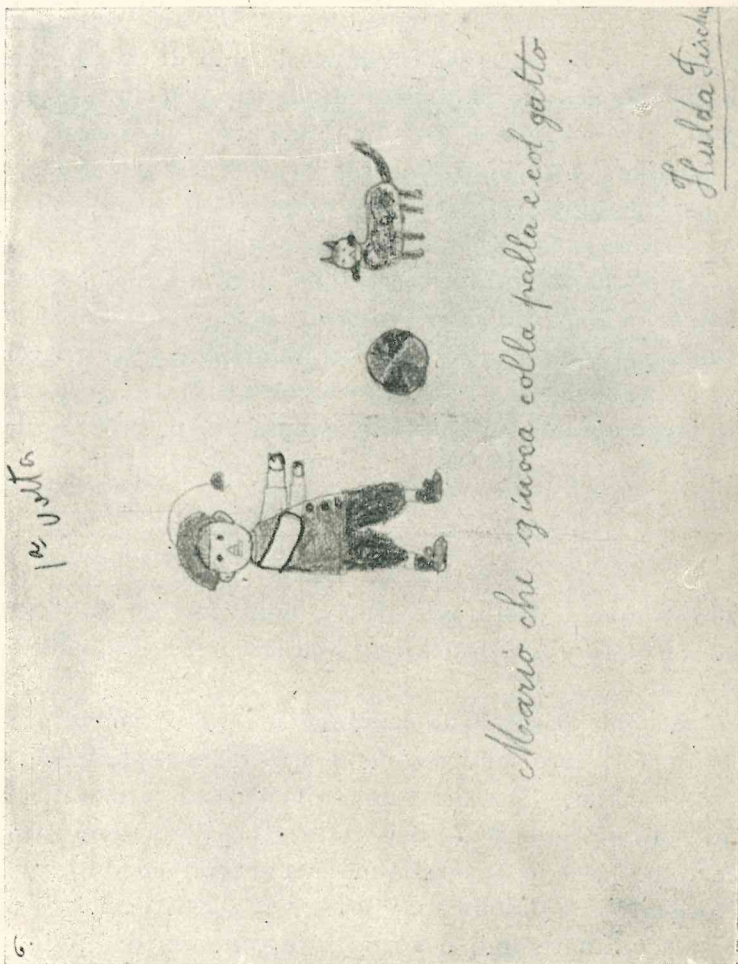 6.
1ª volta
Mario che giuoca colla palla e col gatto
Hulda